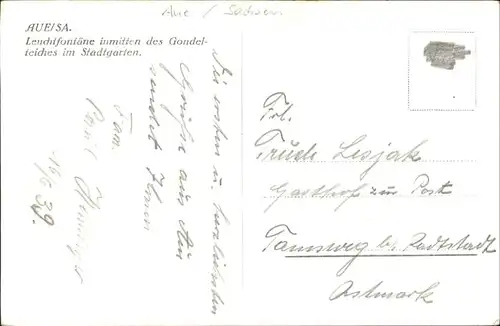 Aue / Sachsen
AUE/SA.
Leuchtfontäne inmitten des Gondel-
teiches im Stadtgarten.
Die ersten u. herzlichsten
Grüße aus Aue
sendet Ihnen
Fam.
Paul
16/6 39.
Frl.
Trude Lesjak
Gasthof zur Post
Tamsweg b. Radstadt
Ostmark